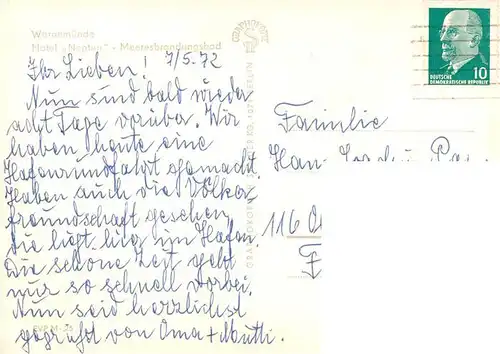 Warnemünde
Hotel „Neptun" - Meeresbrandungsbad
Ihr Lieben! 7/5. 72
Nun sind bald wieder
acht Tage vorüber. Wir
haben heute eine
Hafenrundfahrt gemacht.
Haben auch die Völker
freundschaft gesehen
die liegt hier im Hafen.
Die schöne Zeit geht
nur so schnell vorbei.
Nun seid herzlichst
gegrüßt von Oma + Mutti.
10
DEUTSCHE
DEMOKRATISCHE REPUBLIK
Familie
Han
116
F